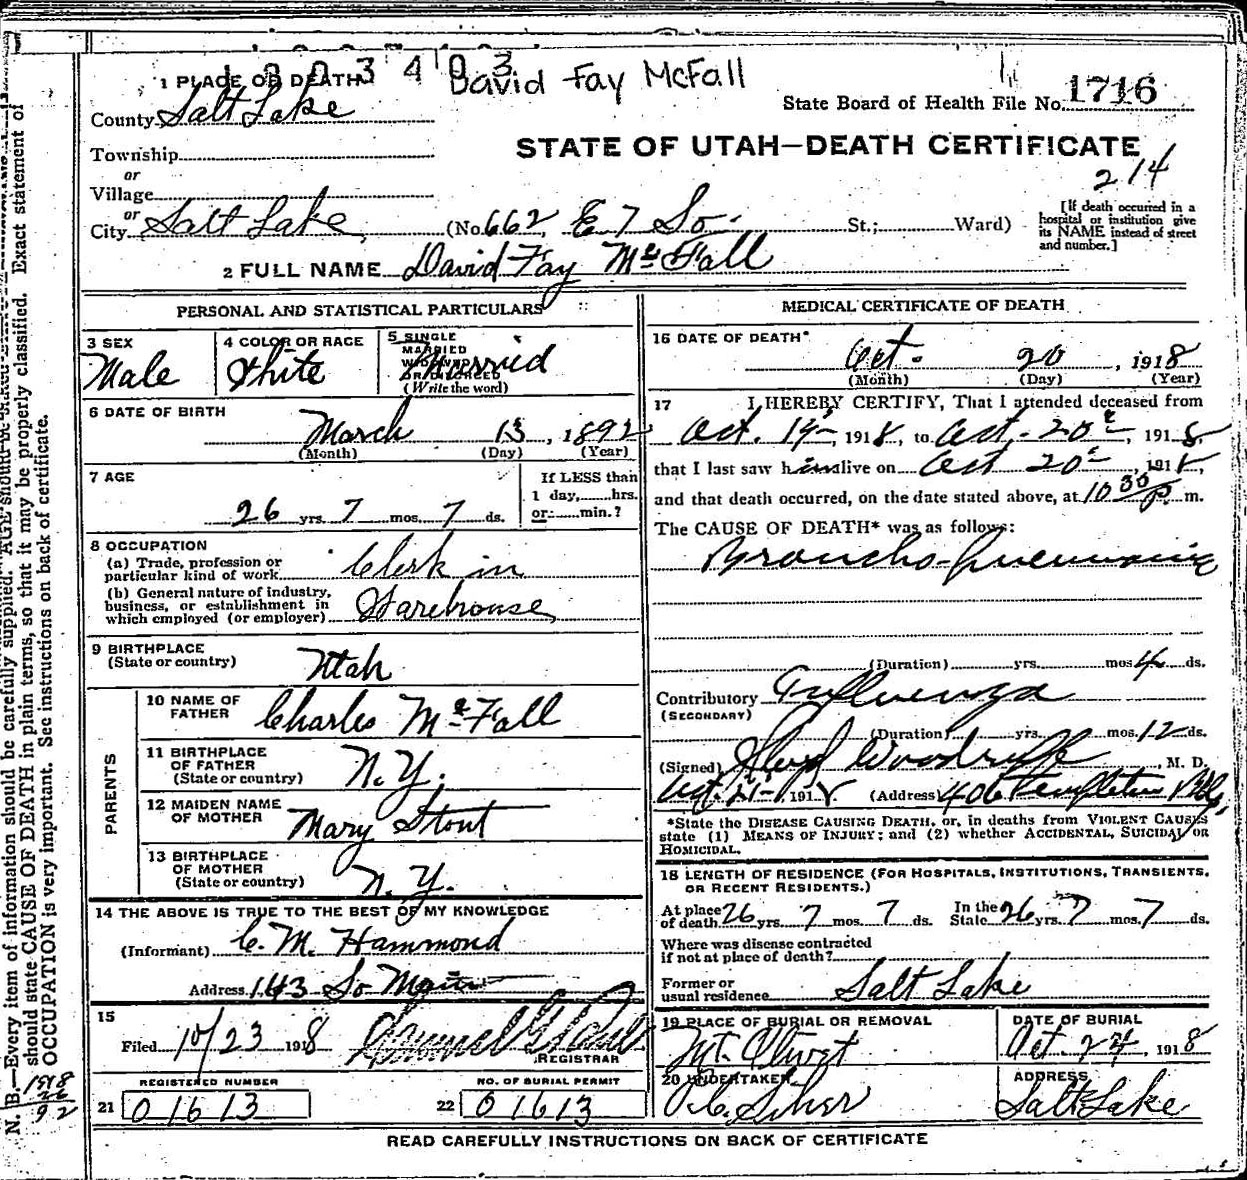 1203403 David Fay McFall
1 PLACE OF DEATH
State Board of Health File No. 1716
County Salt Lake
STATE OF UTAH—DEATH CERTIFICATE
Township
or
Village
214
or
City Salt Lake, (No. 662, E 7 So. St.; Ward)
[If death occurred in a
hospital or institution give
its NAME instead of street
and number.]
2 FULL NAME David Fay McFall
PERSONAL AND STATISTICAL PARTICULARS
3 SEX
Male
4 COLOR OR RACE
White
5 SINGLE
MARRIED
WIDOWED
OR DIVORCED
(Write the word)
Married
6 DATE OF BIRTH
March 13, 1892
(Month) (Day) (Year)
7 AGE
26 yrs. 7 mos. 7 ds.
If LESS than
1 day, hrs.
or min.?
8 OCCUPATION
(a) Trade, profession or
particular kind of work Clerk in
(b) General nature of industry,
business, or establishment in
which employed (or employer) Warehouse
9 BIRTHPLACE
(State or country) Utah
PARENTS
10 NAME OF
FATHER Charles McFall
11 BIRTHPLACE
OF FATHER
(State or country) N.Y.
12 MAIDEN NAME
OF MOTHER Mary Stout
13 BIRTHPLACE
OF MOTHER
(State or country) N.Y.
14 THE ABOVE IS TRUE TO THE BEST OF MY KNOWLEDGE
(Informant) C. M. Hammond
Address 143 So Main
15
Filed 10/23 1918
REGISTRAR
REGISTERED NUMBER
21 01613
NO. OF BURIAL PERMIT
22 01613
MEDICAL CERTIFICATE OF DEATH
16 DATE OF DEATH*
Oct. 20, 1918
(Month) (Day) (Year)
17 I HEREBY CERTIFY, That I attended deceased from
Oct. 19, 1918, to Oct. 20, 1918,
that I last saw him alive on Oct 20, 1918,
and that death occurred, on the date stated above, at 10 30 p m.
The CAUSE OF DEATH* was as follows:
Broncho-Pneumonia
(Duration) yrs. mos. 4 ds.
Contributory Influenza
(SECONDARY)
(Duration) yrs. mos. 12 ds.
(Signed) Lloyd Woodruff, M. D.
Oct. 21 1918 (Address) 406 Templeton Bldg,
*State the DISEASE CAUSING DEATH, or, in deaths from VIOLENT CAUSES
state (1) MEANS OF INJURY; and (2) whether ACCIDENTAL, SUICIDAL OR
HOMICIDAL.
18 LENGTH OF RESIDENCE (FOR HOSPITALS, INSTITUTIONS, TRANSIENTS,
OR RECENT RESIDENTS.)
At place
of death 26 yrs. 7 mos. 7 ds. In the
State 26 yrs. 7 mos. 7 ds.
Where was disease contracted
if not at place of death?
Former or
usual residence Salt Lake
19 PLACE OF BURIAL OR REMOVAL
Mt. Olivet
DATE OF BURIAL
Oct. 24, 1918
20 UNDERTAKER
ADDRESS
Salt Lake
READ CAREFULLY INSTRUCTIONS ON BACK OF CERTIFICATE
N. B.—Every item of information should be carefully supplied. AGE should be
should state CAUSE OF DEATH in plain terms, so that it may be properly classified. Exact statement of
OCCUPATION is very important. See instructions on back of certificate.
1918
26
92